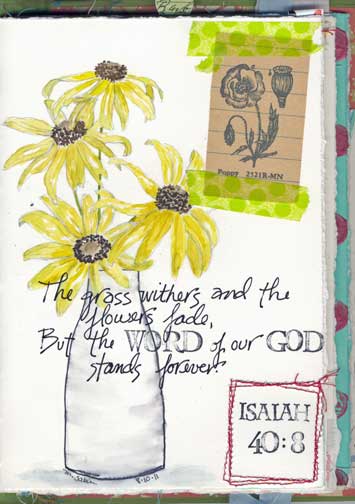 Poppy 2521R-MN
The grass withers and the
flowers fade,
But the WORD of our GOD
stands forever.
ISAIAH
40:8
8-10-11